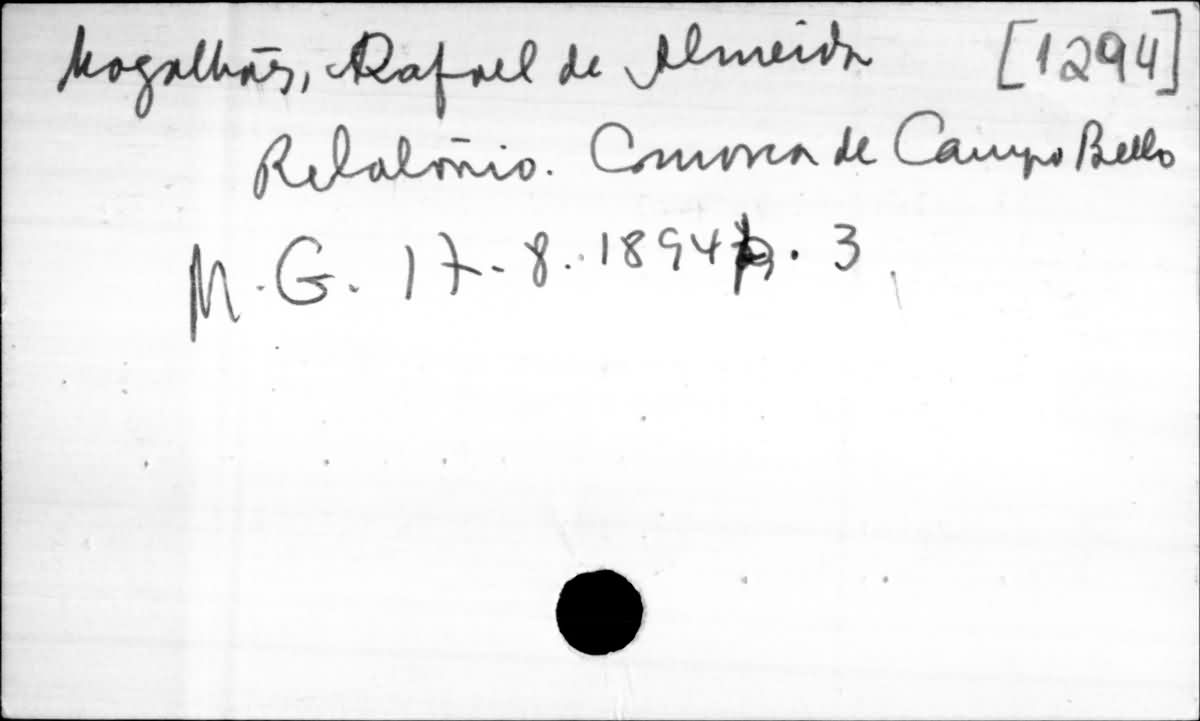 Magalhães, Rafael de Almeida [1294]
Relatório. Comarca de Campo Bello
M.G. 17-8.1894 p. 3